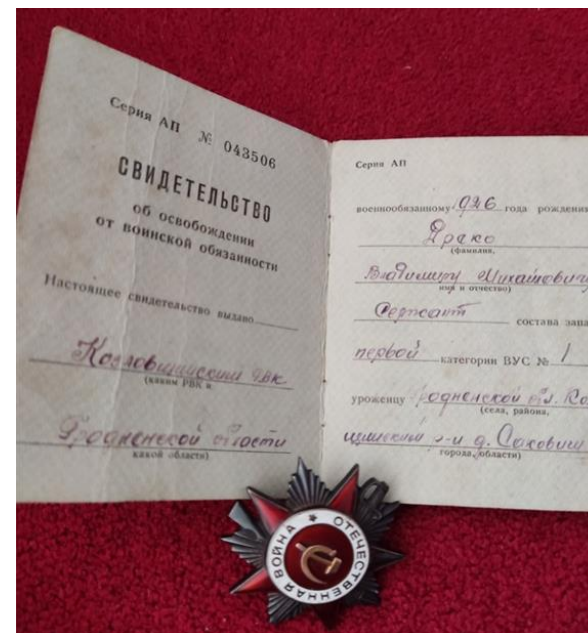 Серия АП № 043506
СВИДЕТЕЛЬСТВО
об освобождении
от воинской обязанности
Настоящее свидетельство выдано
Козловщинским РВК
(каким РВК и
Гродненской области
какой области)
Серия АП
военнообязанному 1926 года рождения
Драко
(фамилия,
Владимиру Михайловичу
имя и отчество)
Сержант состава запа
первой категории ВУС № 1
уроженцу Гродненской обл. Ко
(села, района,
р-н д.
города, области)
ОТЕЧЕСТВЕННАЯ ВОЙНА